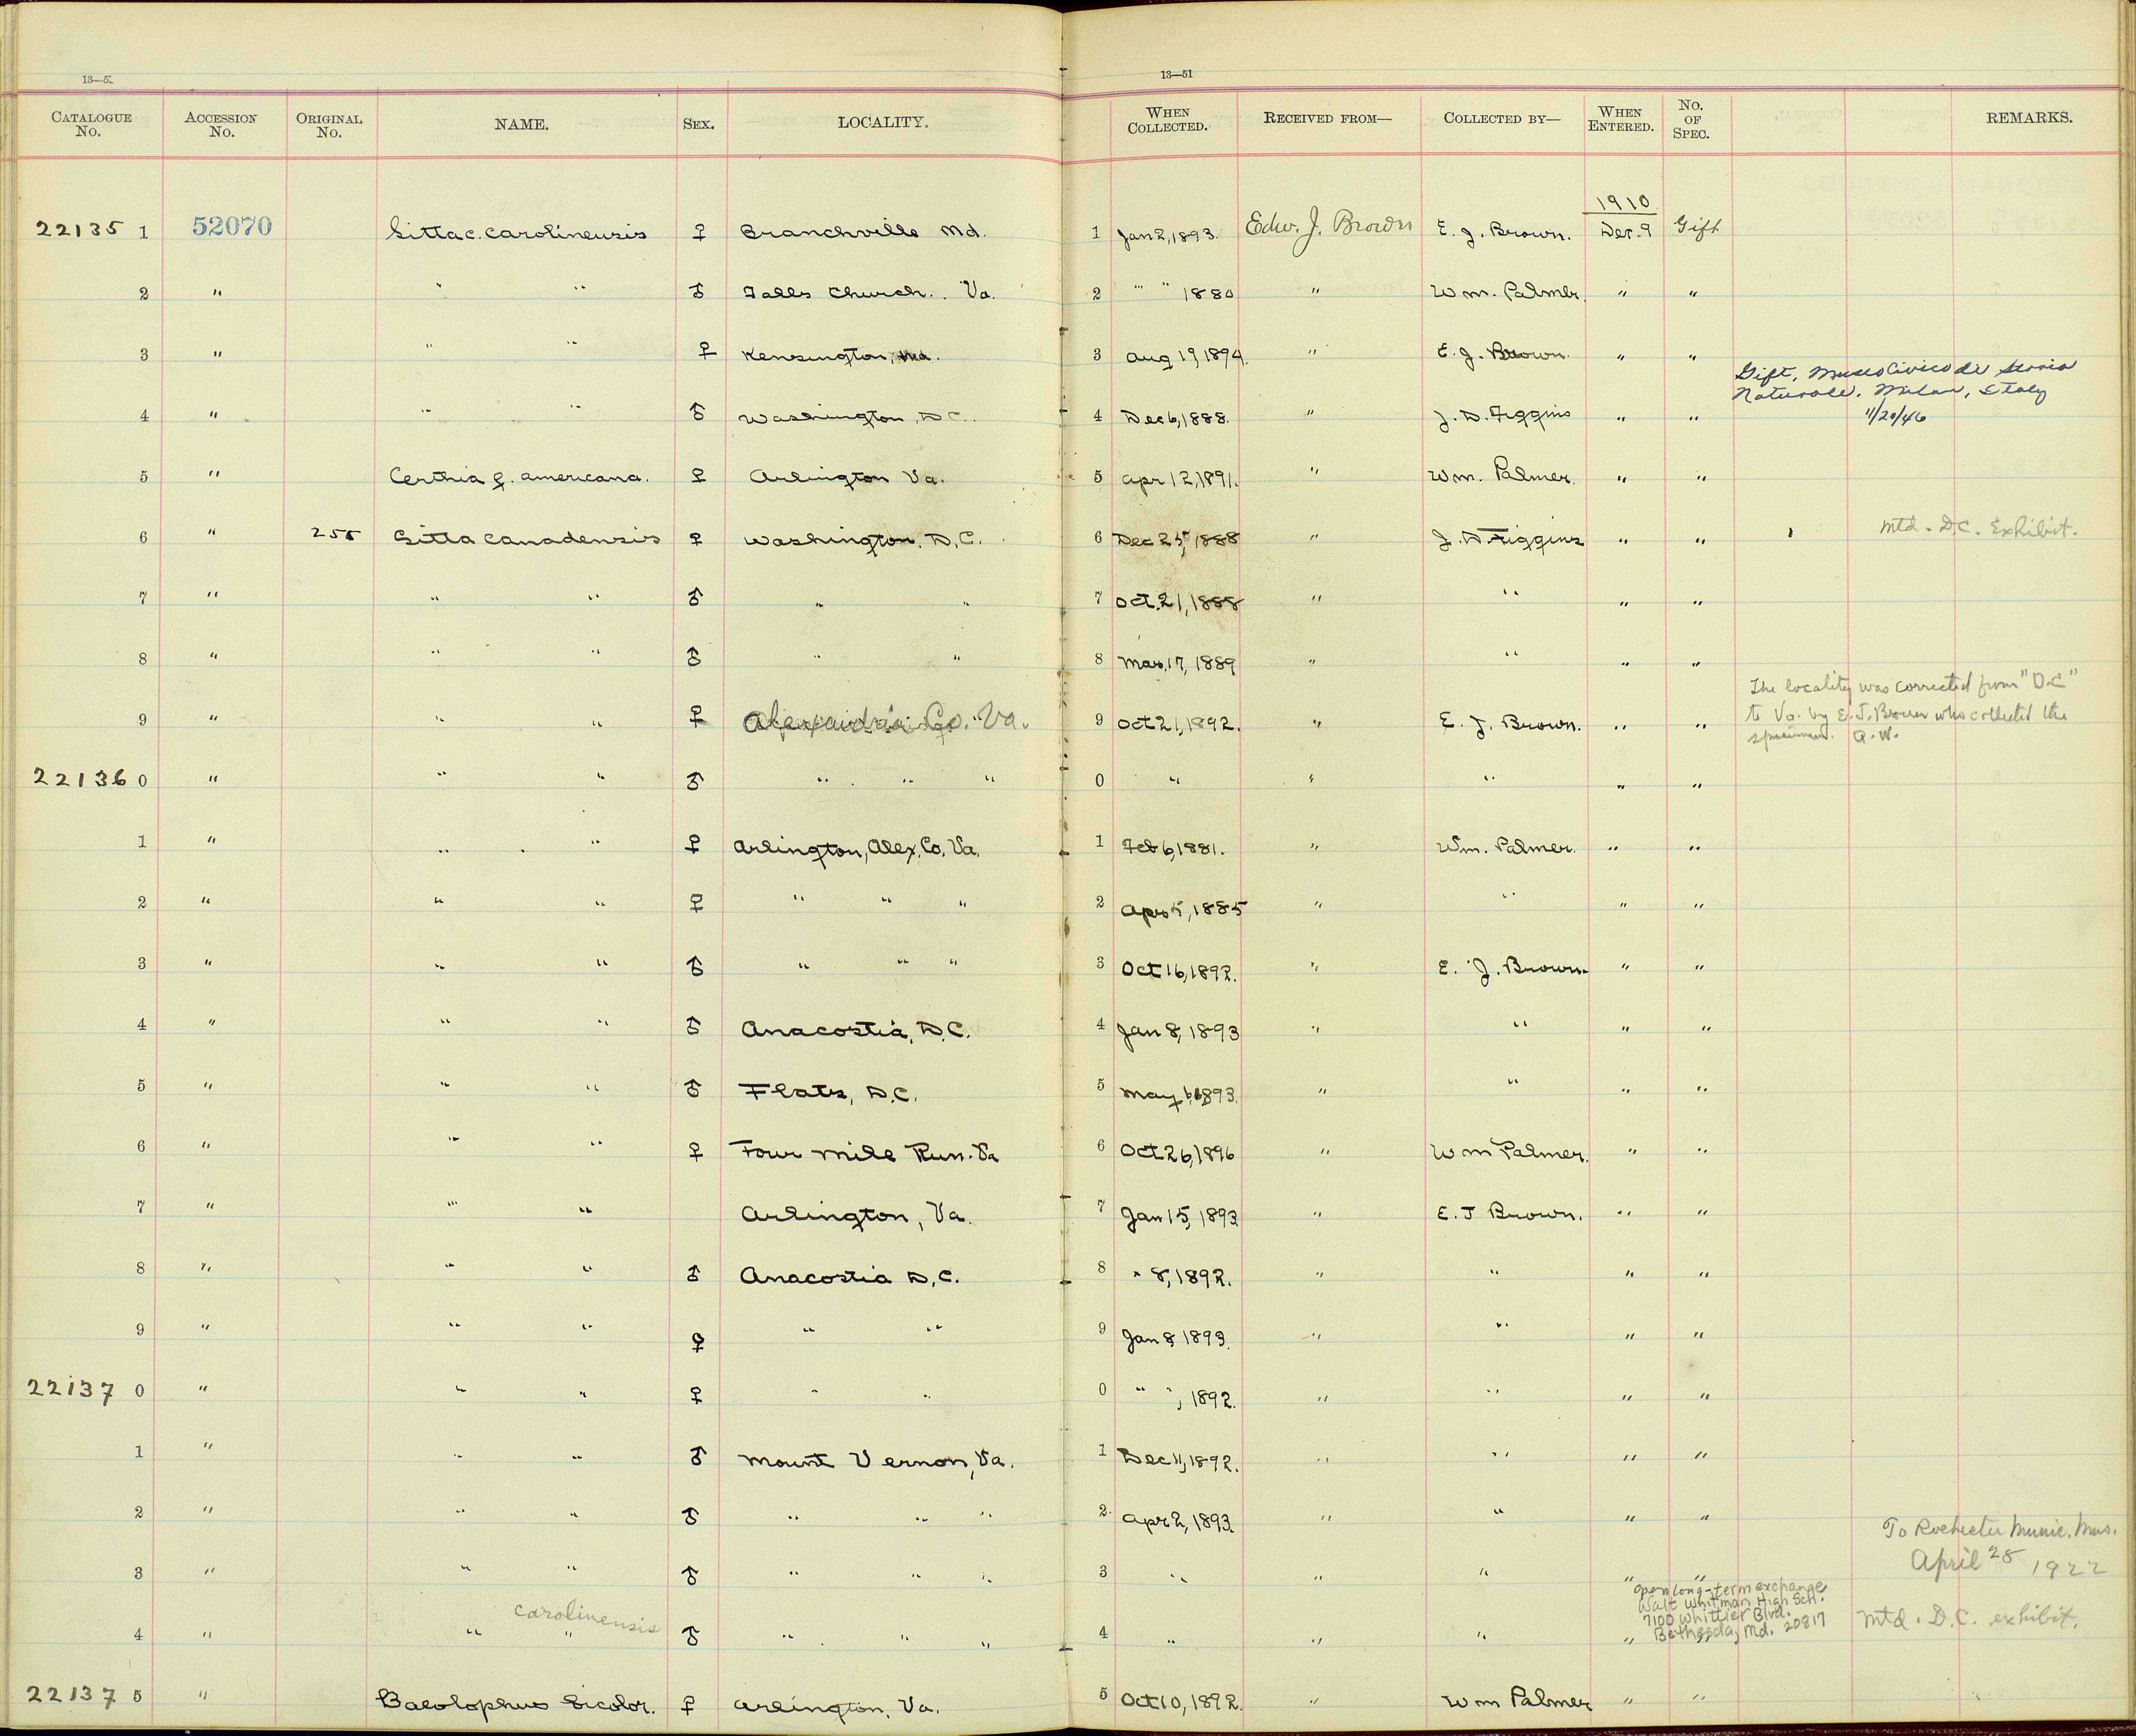 13—5
13—51
CATALOGUE No. ACCESSION No. ORIGINAL No. NAME. SEX. LOCALITY. WHEN COLLECTED. RECEIVED FROM— COLLECTED BY— WHEN ENTERED. No. OF SPEC. REMARKS.
1910
22135 1 52070 Sitta c. carolinensis ♀ Branchville Md. 1 Jan 2, 1893. Edw. J. Brown E. J. Brown. Dec. 9 Gift
2 " " " ♂ Falls Church. Va. 2 " " 1880 " Wm. Palmer. " "
3 " " " ♀ Kensington, Md. 3 Aug 19, 1894. " E. J. Brown. " "
4 " " " ♂ Washington, D.C. 4 Dec 6, 1888. " J. D. Figgins " " Gift, Museo Civico di Storia
Naturale, Milan, Italy
11/20/46
5 " Certhia f. americana. ♀ Arlington Va. 5 Apr 12, 1891. " Wm. Palmer. " "
6 " 255 Sitta canadensis ♀ Washington, D.C. 6 Dec 25, 1888 " J. D. Figgins " " Mtd. D.C. Exhibit.
7 " " " ♂ " " 7 Oct. 21, 1888 " " " "
8 " " " ♂ " " 8 Mar. 17, 1889 " " " "
9 " " " ♀ Alexandria Co. Va. 9 Oct 21, 1892. " E. J. Brown. " " The locality was corrected from "D.C"
to Va. by E. J. Brown who collected the
specimen. A. W.
22136 0 " " " ♂ " " " 0 " " " " "
1 " " " ♀ Arlington, Alex. Co. Va. 1 Feb 6, 1881. " Wm. Palmer. " "
2 " " " ♀ " " " 2 Apr 5, 1885 " " " "
3 " " " ♂ " " " 3 Oct 16, 1892. " E. J. Brown. " "
4 " " " ♂ Anacostia, D.C. 4 Jan 8, 1893 " " " "
5 " " " ♂ Flats, D.C. 5 May 1893. " " " "
6 " " " ♀ Four Mile Run. Va 6 Oct 26, 1896 " Wm Palmer. " "
7 " " " Arlington, Va. 7 Jan 15, 1893 " E. J Brown. " "
8 " " " ♂ Anacostia D.C. 8 " 8, 1892. " " " "
9 " " " ♀ " " 9 Jan 8 1893. " " " "
22137 0 " " " ♀ " " 0 " ", 1892. " " " "
1 " " " ♂ Mount Vernon, Va. 1 Dec 11, 1892. " " " "
2 " " " ♂ " " " 2 Apr 2, 1893. " " " "
3 " " " ♂ " " " 3 " " " " " To Rochester Munic. Mus.
April 28 1922
4 " " " carolinensis ♂ " " " 4 " " " " " Open long-term exchange
Walt Whitman High Sch.
7100 Whittier Blvd.
Bethesda, Md. 20817
Mtd. D.C. exhibit.
22137 5 " Baeolophus bicolor. ♀ Arlington, Va. 5 Oct 10, 1892. " Wm Palmer " "